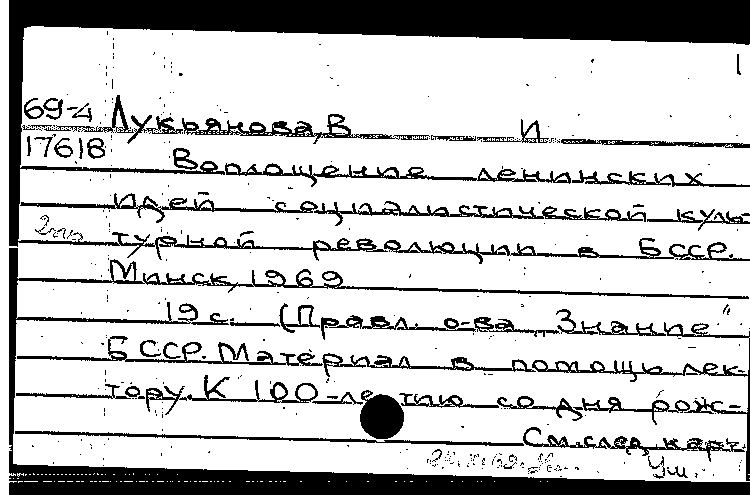 69-4 Лукьянова, В И
17618 Воплощение ленинских
идей социалистической куль-
2 турной революции в БССР.
Минск, 1969
19 с. (Правл. о-ва „Знание"
БССР. Материал в помощь лек-
тору. К 100-летию со дня рож-
См. след. карт.
Уш.